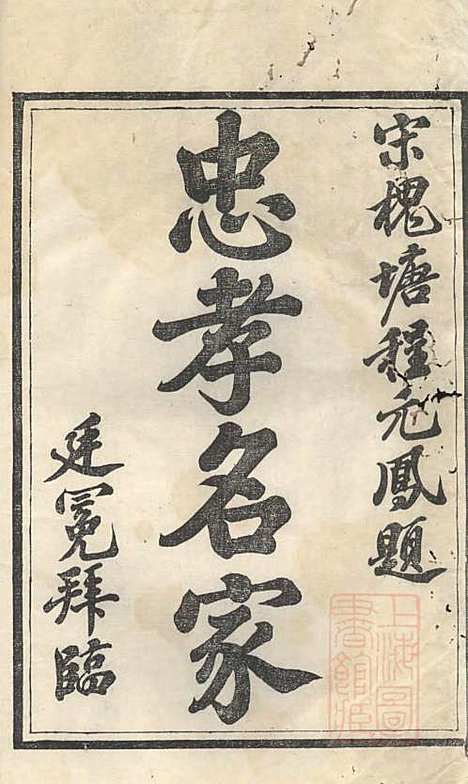 宋槐塘程元鳳題
忠孝名家
廷冕拜臨
上海圖
書館藏